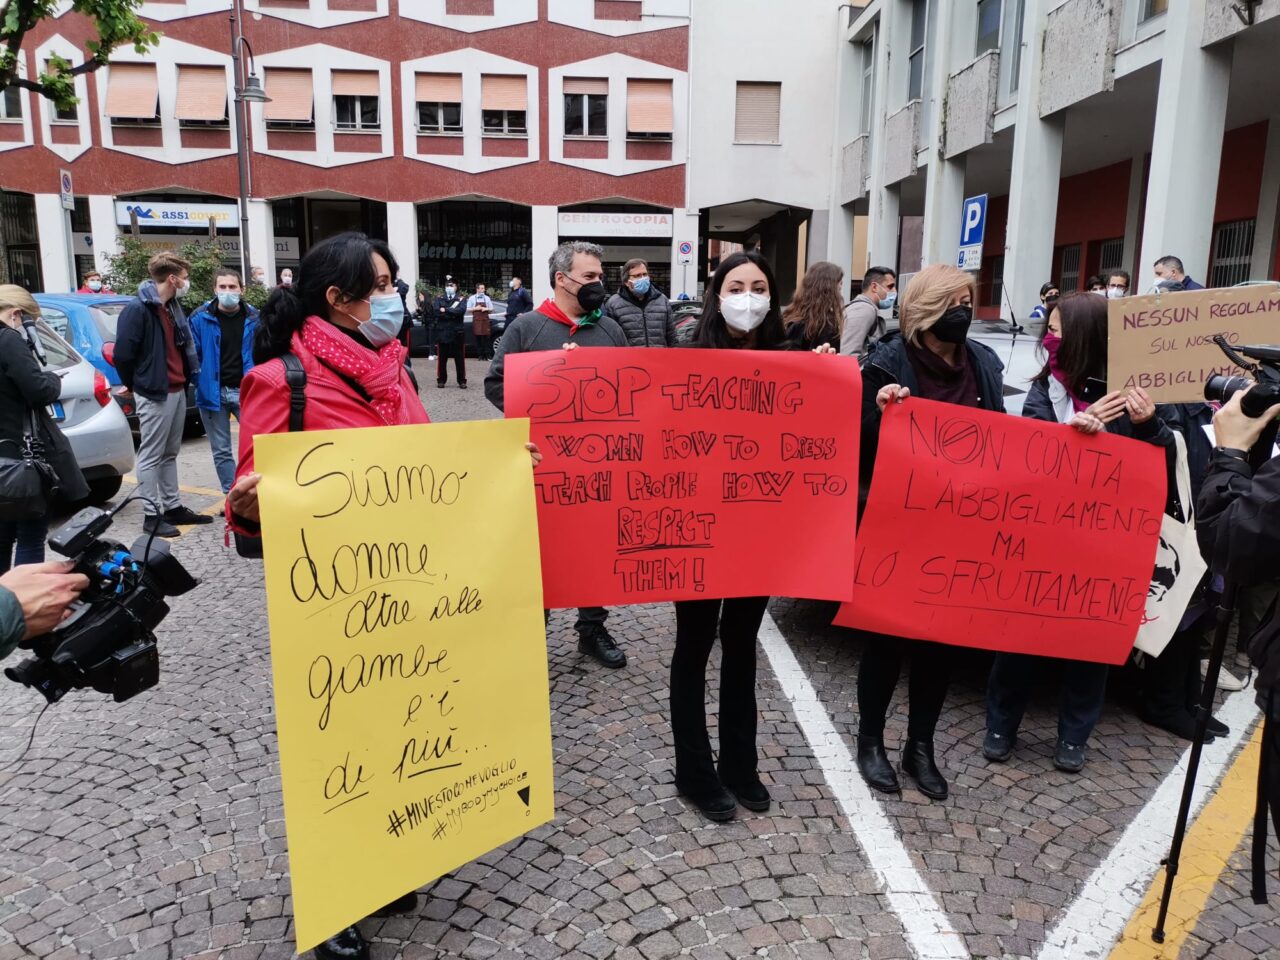 assicover
Assicurazioni
deria Automatic
CENTROCOPIA
P
Siamo
donne,
oltre alle
gambe
c'è
di più...
#MIVESTOCOMEVOGLIO
#MYBODYMYCHOICE
STOP TEACHING
WOMEN HOW TO DRESS
TEACH PEOPLE HOW TO
RESPECT
THEM!
NON CONTA
L'ABBIGLIAMENTO
MA
LO SFRUTTAMENTO
NESSUN REGOLAM
SUL NOSTRO
ABBIGLIAMEN